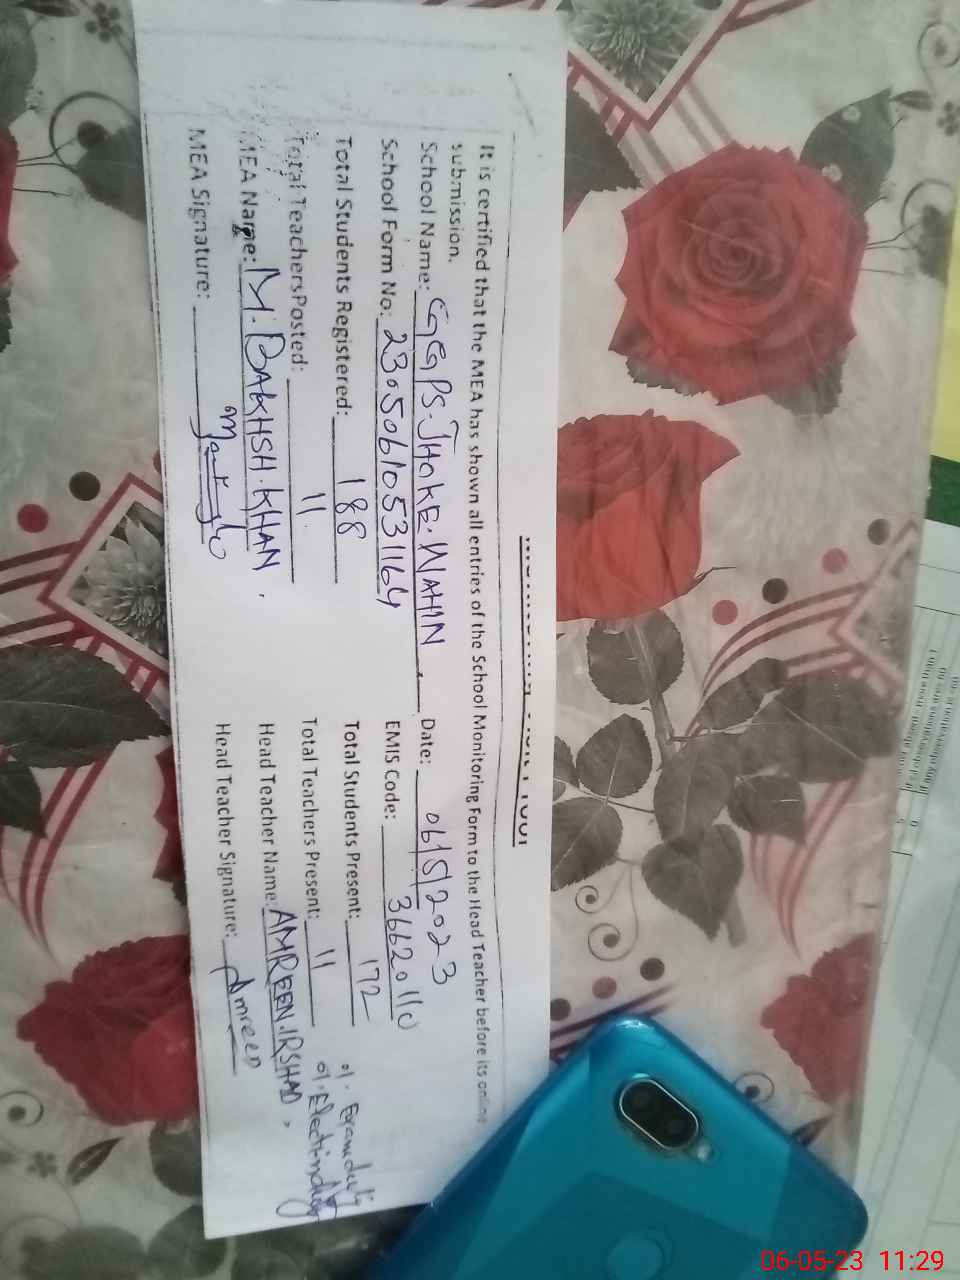 It is certified that the MEA has shown all entries of the School Monitoring Form to the Head Teacher before its online
submission.
School Name: GGPS. JHOKE. WAHIN Date: 06/5/2023
School Form No: 2305061053 1164 EMIS Code: 36620110
Total Students Registered: 188 Total Students Present: 172
Total Teachers Posted: 11 Total Teachers Present: 11
MEA Name: M. BAKHSH. KHAN. Head Teacher Name: AMREEN. IRSHAD.
MEA Signature: Head Teacher Signature: Amreen
01. Exam duty
01. Election duty
if any observation is =60
06-05-23 11:29